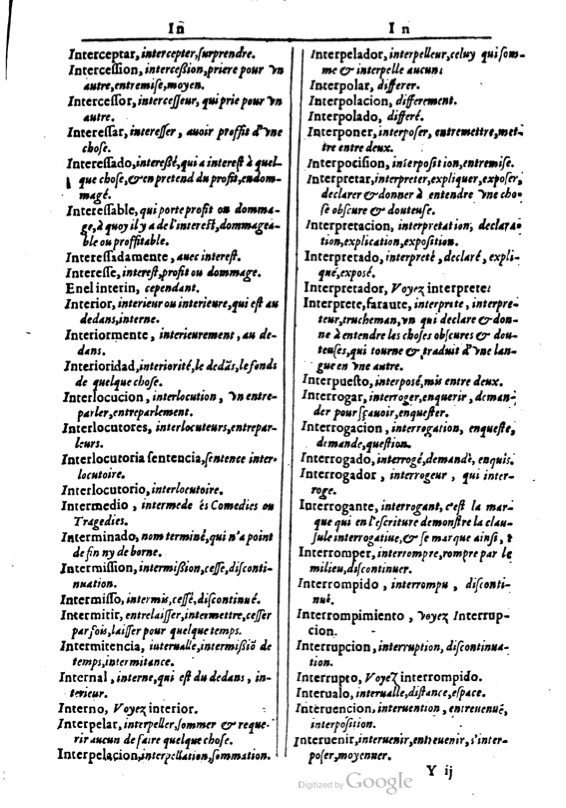 Iñ
Interceptar, intercepter, surprendre.
Intercession, intercession, priere pour vn
autre, entremise, moyen.
Intercessor, intercesseur, qui prie pour vn
autre.
Interessar, interesser, auoir proffit d'vne
chose.
Interessado, interessé, qui a interest à quel-
que chose, & en pretend du profit, endom-
magé.
Interessable, qui porte profit ou domma-
ge, à quoy il y a de l'interest, dommagea-
ble ou proffitable.
Interessadamente, auec interest.
Interesse, interest, profit ou dommage.
Enel interin, cependant.
Interior, interieur ou interieure, qui est au
dedans, interne.
Interiormente, interieurement, au de-
dans.
Interioridad, interiorité, le dedãs, le fonds
de quelque chose.
Interlocucion, interlocution, vn entre-
parler, entreparlement.
Interlocutores, interlocuteurs, entrepar-
leurs.
Interlocutoria sentencia, sentence inter-
locutoire.
Interlocutorio, interlocutoire.
Intermedio, intermede és Comedies ou
Tragedies.
Interminado, nom terminé, qui n'a point
de fin ny de borne.
Intermission, intermission, cesse, disconti-
nuation.
Intermisso, intermis, cessé, discontinué.
Intermitir, entrelaisser, intermettre, cesser
par fois, laisser pour quelque temps.
Intermitencia, interualle, intermissiõ de
temps, intermitance.
Internal, interne, qui est du dedans, in-
terieur.
Interno, Voyez interior.
Interpelar, interpeller, sommer & reque-
rir aucun de faire quelque chose.
Interpelacion, interpellation, sommation.
In
Interpelador, interpelleur, celuy qui som-
me & interpelle aucun.
Interpolar, differer.
Interpolacion, differement.
Interpolado, differé.
Interponer, interposer, entremettre, met-
tre entre deux.
Interpocision, interposition, entremise.
Interpretar, interpreter, expliquer, exposer,
declarer & donner à entendre vne cho-
se obscure & douteuse.
Interpretacion, interpretation, declara-
tion, explication, exposition.
Interpretado, interpreté, declaré, expli-
qué, exposé.
Interpretador, Voyez interprete:
Interprete, faraute, interprete, interpre-
teur, trucheman, vn qui declare & don-
ne à entendre les choses obscures & dou-
teuses, qui tourne & traduit d'vne lan-
gue en vne autre.
Interpuesto, interposé, mis entre deux.
Interrogar, interroger, enquerir, deman-
der pour sçauoir, enquester.
Interrogacion, interrogation, enqueste,
demande, question.
Interrogado, interrogé, demandé, enquis.
Interrogador, interrogeur, qui inter-
roge.
Interrogante, interrogant, c'est la mar-
que qui en l'escriture demonstre la clau-
sule interrogatiue, & se marque ainsi,
Interromper, interrompre, rompre par le
milieu, discontinuer.
Interrompido, interrompu, disconti-
nué.
Interrompimiento, voyez Interrup-
cion.
Interrupcion, interruption, discontinua-
tion.
Interrupto, Voyez interrompido.
Interualo, interualle, distance, espace.
Interuencion, interuention, entreuenuë,
interposition.
Interuenir, interuenir, entreuenir, s'inter-
poser, moyenner.
Y ij
Digitized by Google